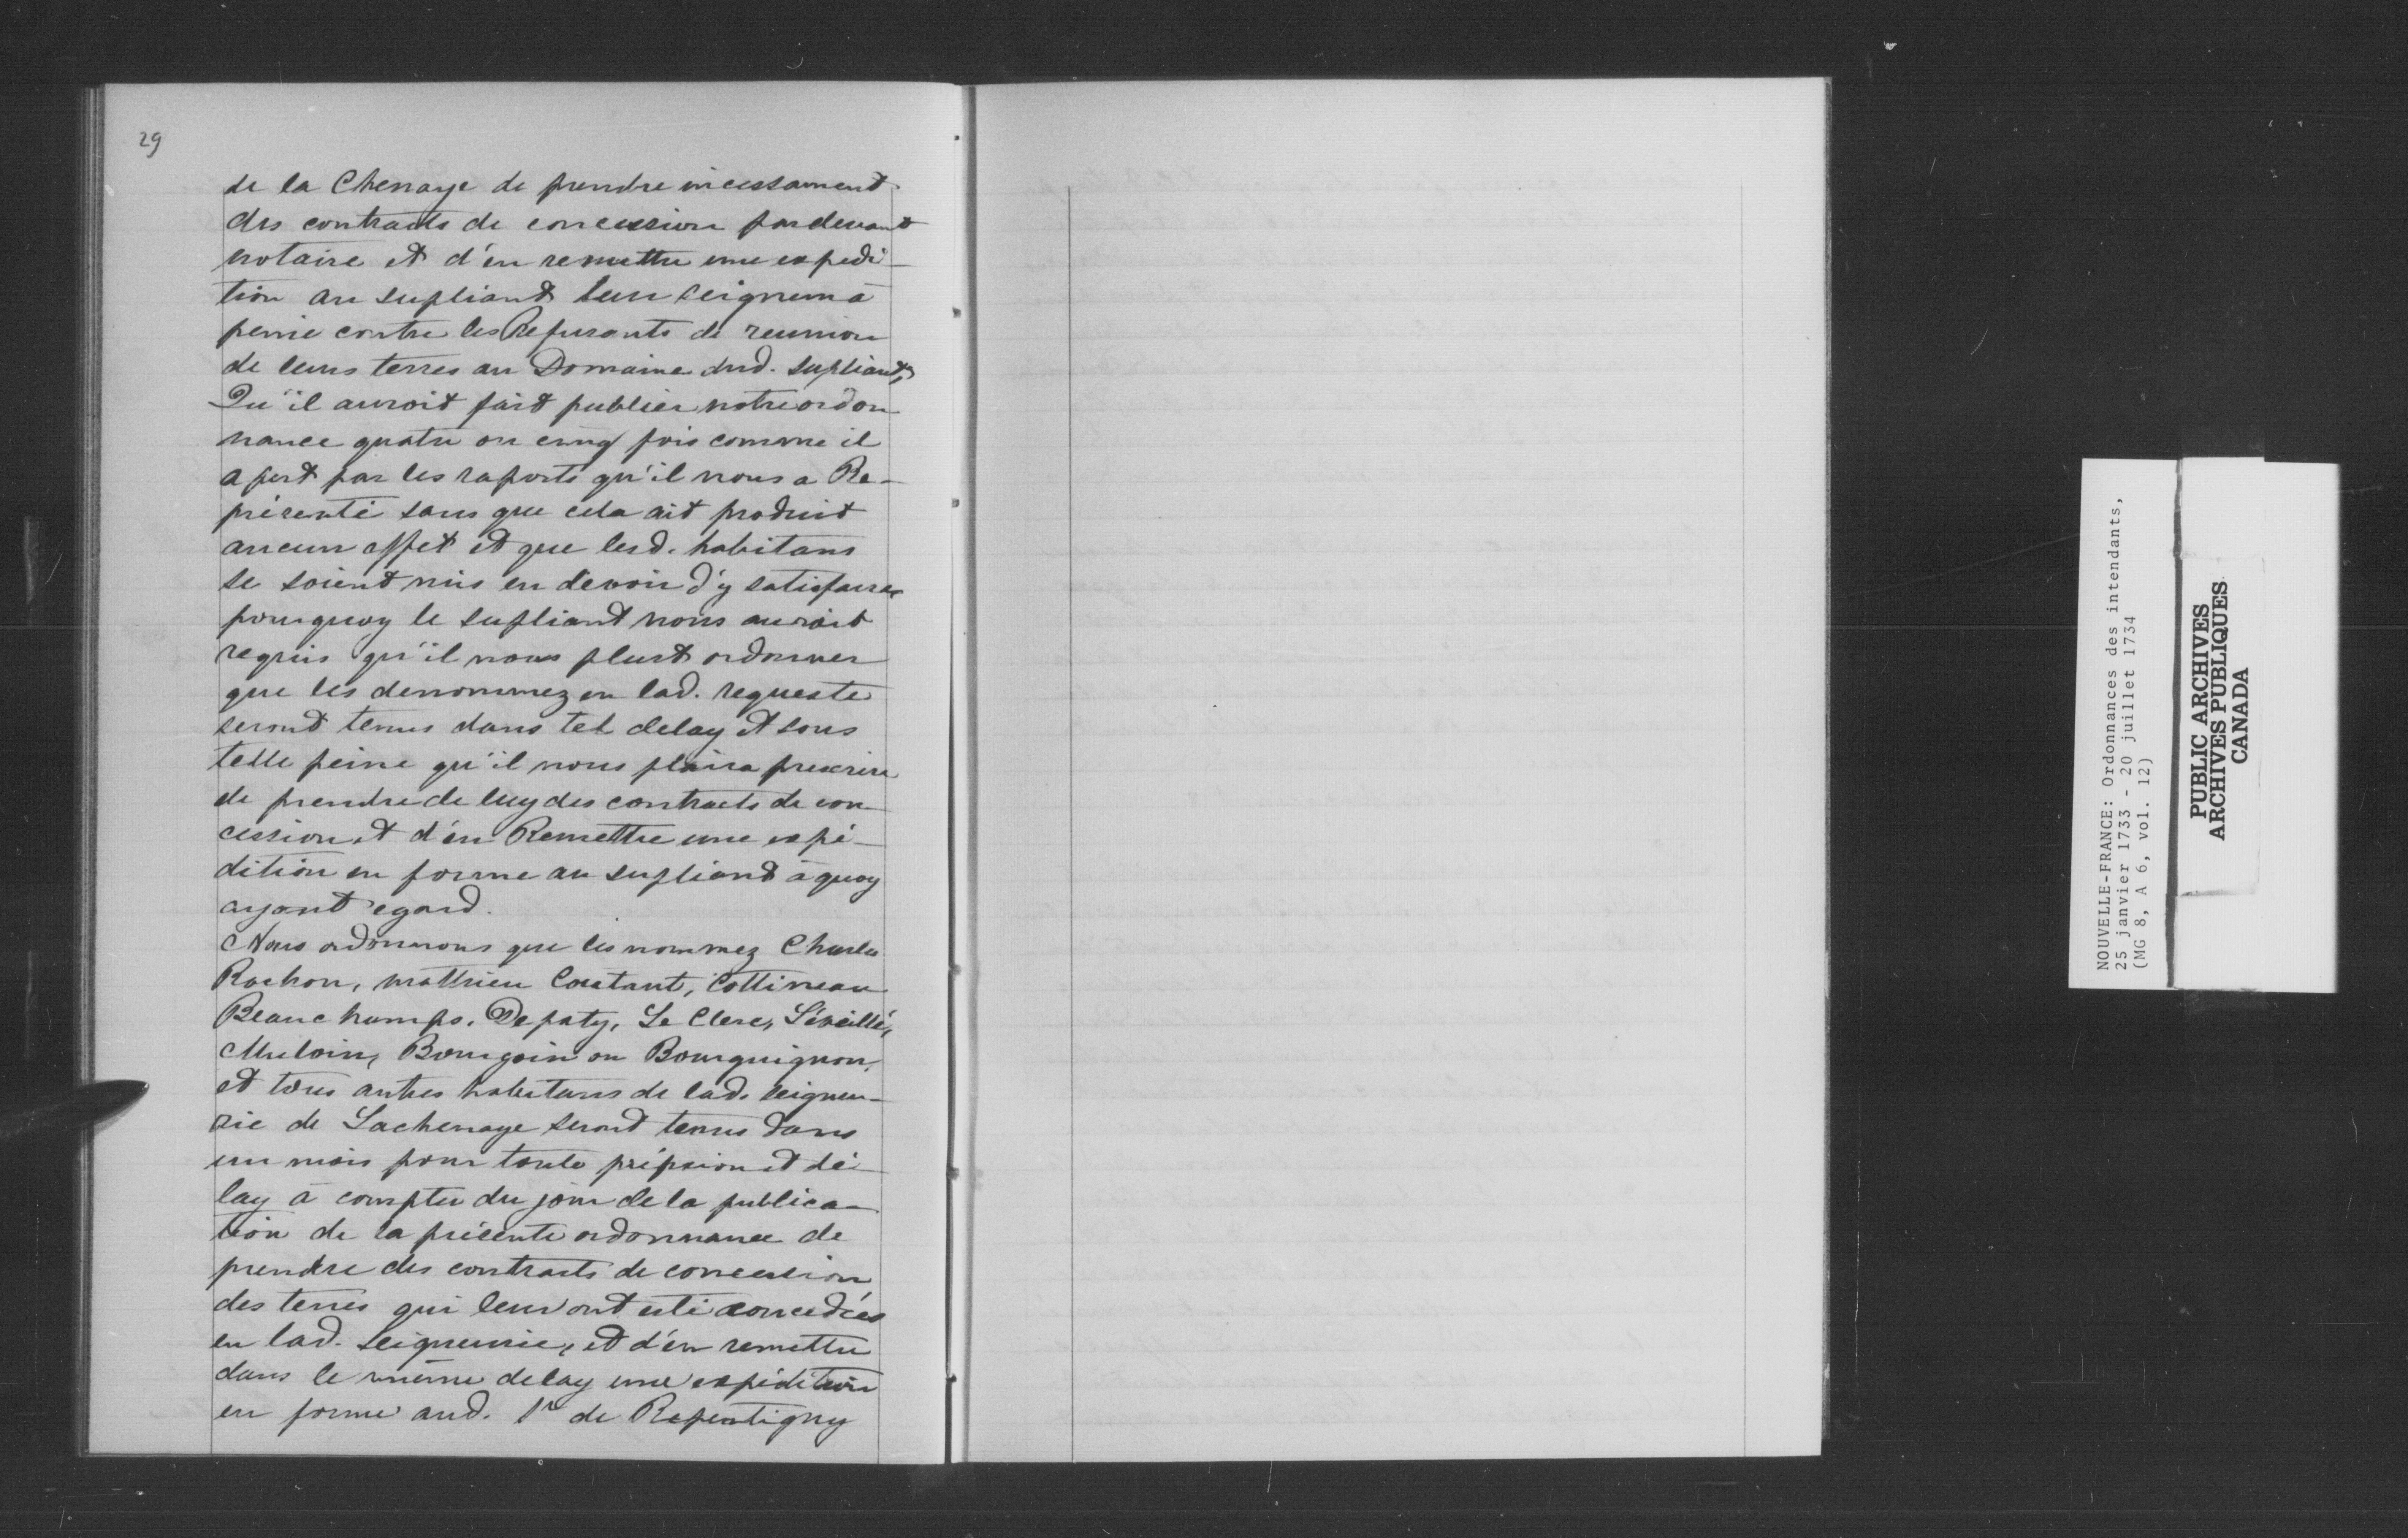 29
de la Chenaye de prendre incessament
des contracts de concession pardevant
notaire et d'en remettre une expedi-
tion au supliant leur seigneur à
peine contre les Refusants de reunion
de leurs terres au Domaine dud. supliant,
Qu'il auroit fait publier notre ordon-
nance quatre ou cinq fois comme il
apert par les raports qu'il nous a Re-
présenté sans que cela ait produit
aucun effet et que lesd. habitans
se soient mis en devoir d'y satisfaire
pourquoy le supliant nous auroit
requis qu'il nous plust ordonner
que les denommez en lad. requeste
seront tenus dans tel delay et sous
telle peine qu'il nous plaira prescrire
de prendre de luy des contracts de con-
cession et d'en Remettre une expé-
dition en forme au supliant à quoy
ayant egard.
Nous ordonnons que les nommez Charles
Rochon, mathieu Coutant, Cottineau
Beauchamps, Depaty, Le Clerc, L'éveillé,
Muloin, Bourgoin ou Bourguignon,
et tous autres habitans de lad. seigneu-
rie de Lachenaye seront tenus dans
un mois pour toute préfixion et dé-
lay à compter du jour de la publica-
tion de la présente ordonnance de
prendre des contracts de concession
des terres qui leur ont esté concedées
en lad. seigneurie, et d'en remettre
dans le même delay une expédition
en forme aud. Sr de Repentigny
NOUVELLE-FRANCE: Ordonnances des intendants,
25 janvier 1733 - 20 juillet 1734
(MG 8, A 6, vol. 12)
PUBLIC ARCHIVES
ARCHIVES PUBLIQUES
CANADA